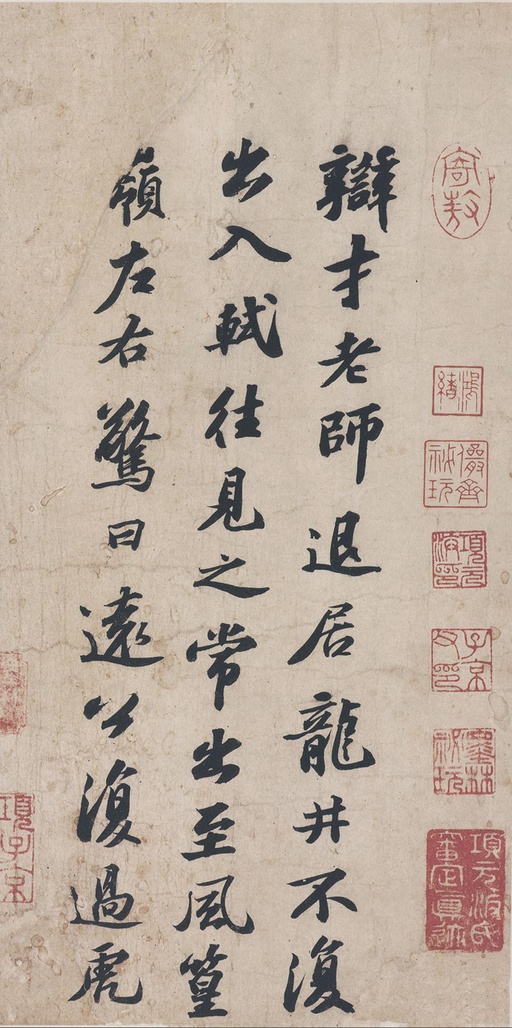 辯才老師退居龍井不復
出入軾往見之常出至風篁
嶺左右驚曰遠公復過虎
項元汴氏
審定真跡